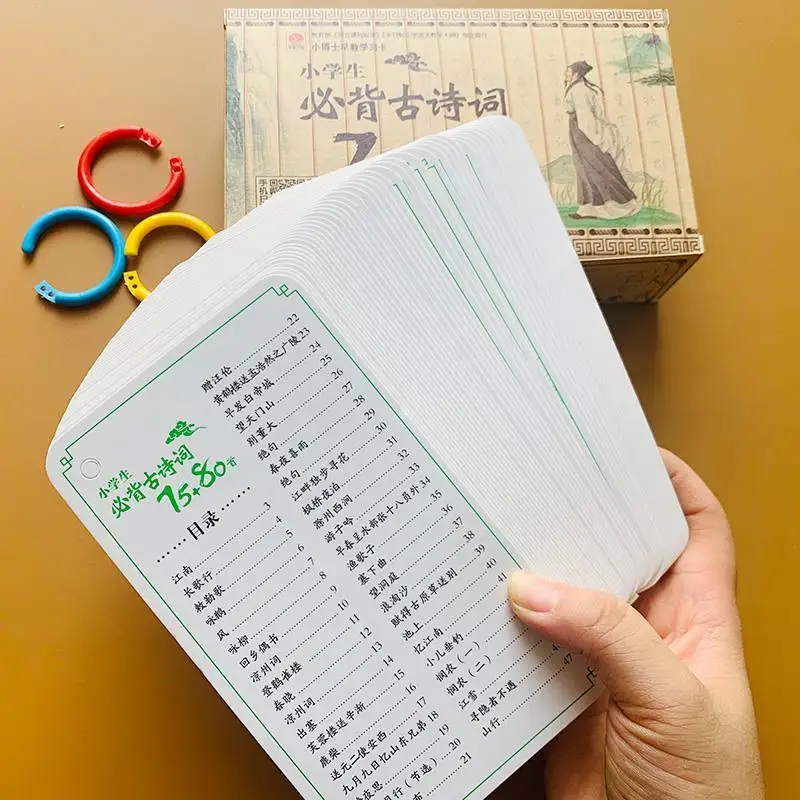 小博士早教学习卡
小学生
必背古诗词
7
小学生
必背古诗词
75+80首
……目录……
江南……3
长歌行……4
敕勒歌……5
咏鹅……6
风……7
咏柳……8
回乡偶书……9
凉州词……10
登鹳雀楼……11
春晓……12
凉州词……13
出塞……14
芙蓉楼送辛渐……15
鹿柴……16
送元二使安西……17
九月九日忆山东兄弟 18
夜思……19
月行（节选）……20
布……21
赠汪伦……22
黄鹤楼送孟浩然之广陵23
早发白帝城……24
望天门山……25
别董大……26
绝句……27
春夜喜雨……28
绝句……29
江畔独步寻花……30
枫桥夜泊……31
滁州西涧……32
游子吟……33
早春呈水部张十八员外 34
渔歌子……35
塞下曲……36
望洞庭……37
浪淘沙……38
赋得古原草送别……39
池上……40
忆江南……41
小儿垂钓……
悯农（一）……
悯农（二）……
江雪……
寻隐者不遇……47
山行……